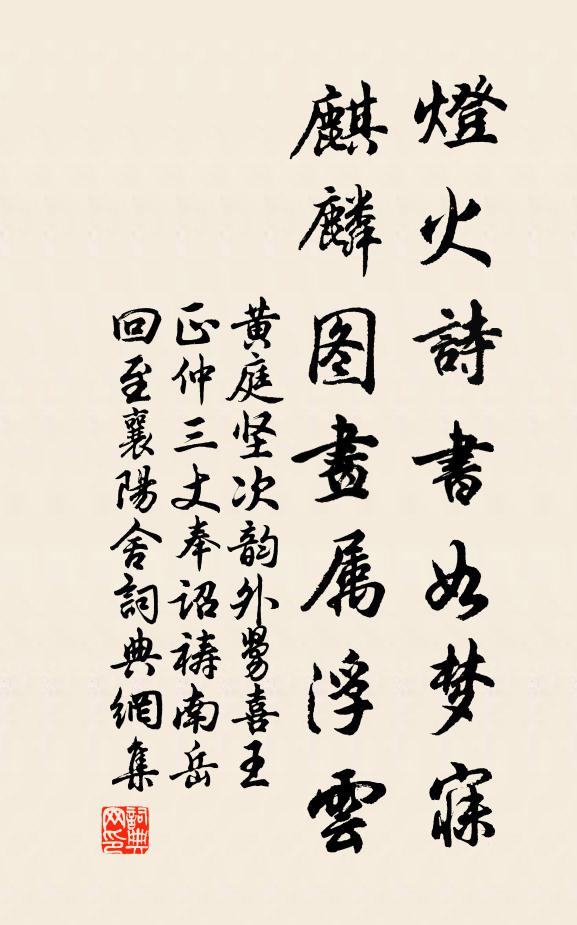 燈火詩書如梦寐
麒麟图畫属浮雲
黄庭坚次韵外舅喜王
正仲三丈奉诏祷南岳
回至襄陽舍詞典網集
詞典网印